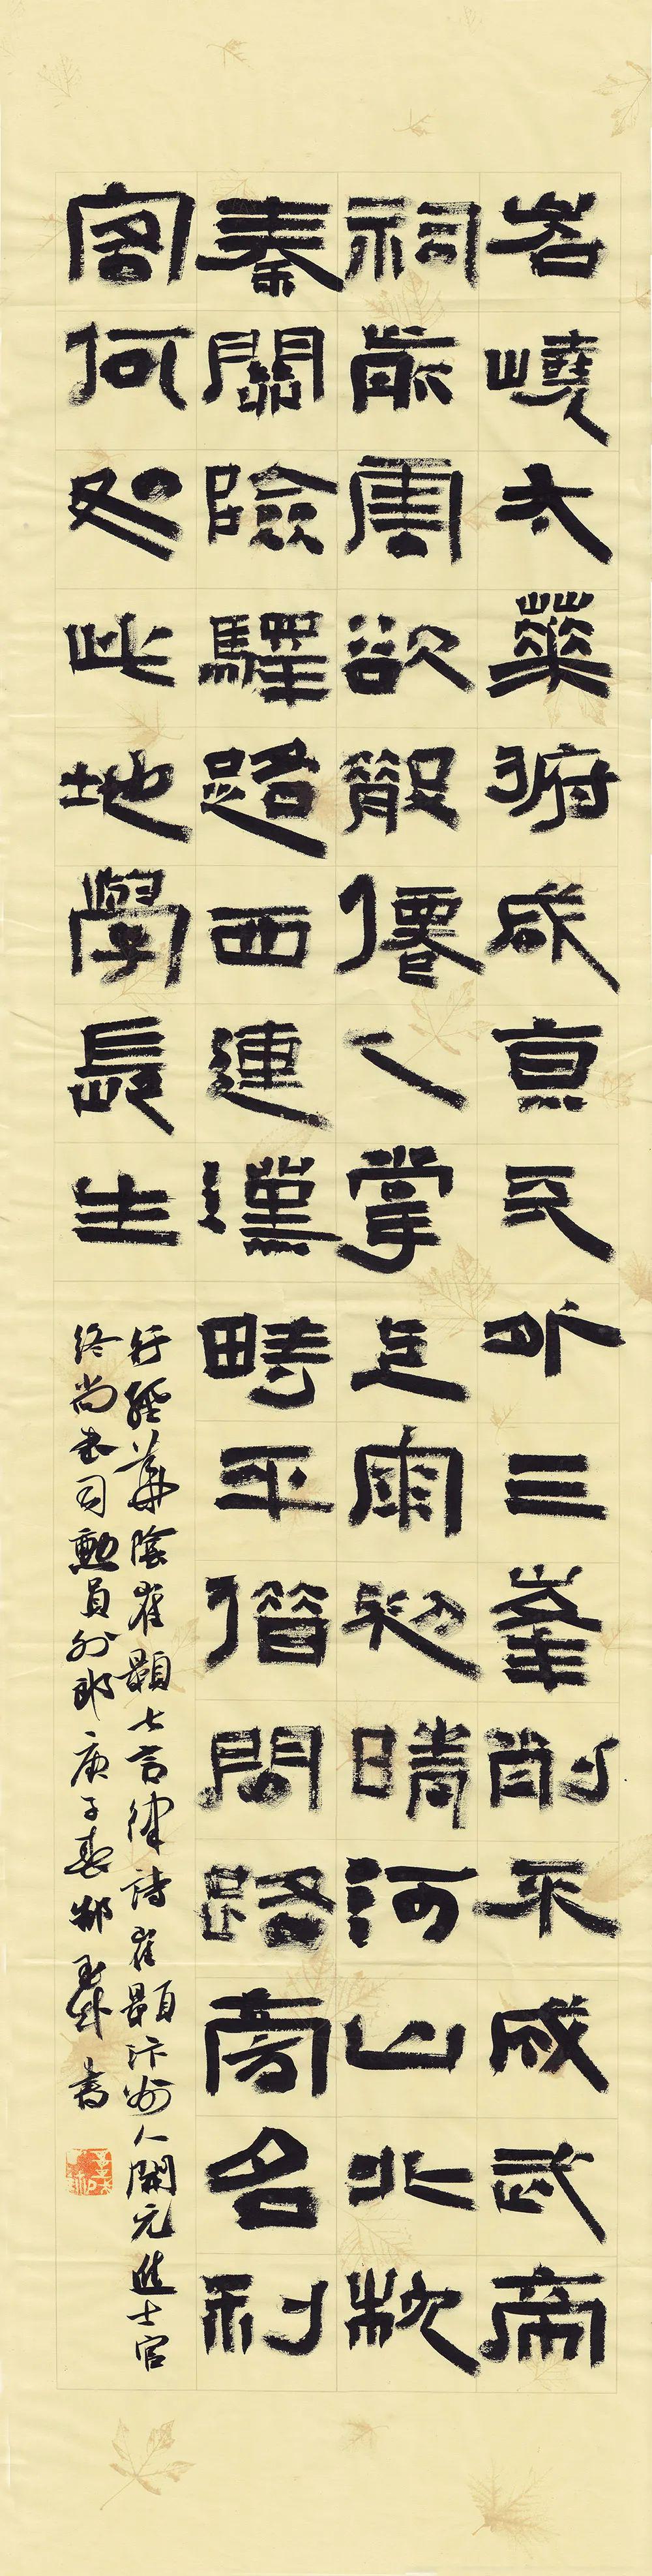 岧嶢太華俯咸京天外三峯削不成武帝
祠前雲欲散僊人掌上雨初晴河山北枕
秦關險驛路西連漢畤平借問路旁名利
客何如此地學長生
行經華陰崔顥七言律詩崔顥汴州人開元進士官
終尚書司勳員外郎庚子春書